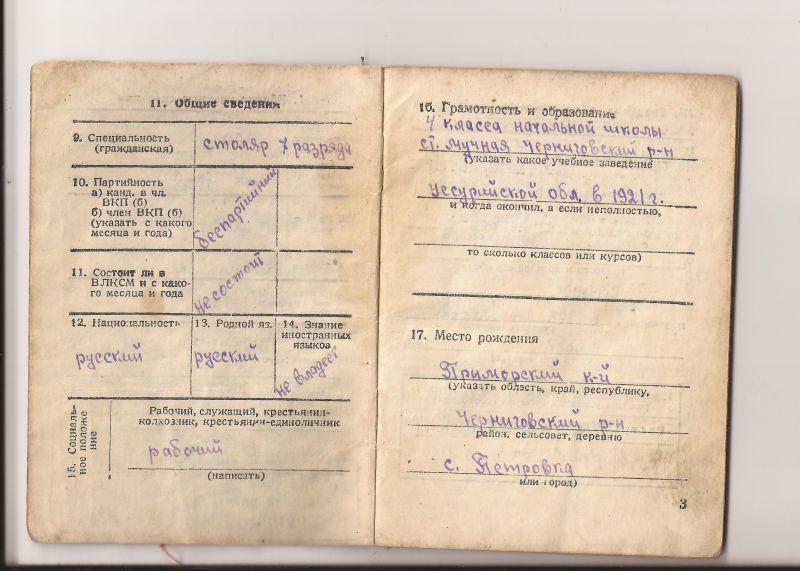 11. Общие сведения
9. Специальность
(гражданская)
столяр 7 разряда
10. Партийность
а) канд. в чл.
ВКП (б)
б) член ВКП (б)
(указать с какого
месяца и года)
беспартийный
11. Состоит ли в
ВЛКСМ и с како-
го месяца и года
не состоит
12. Национальность
русский
13. Родной яз.
русский
14. Знание
иностранных
языков
не владеет
15. Социаль-
ное положе
ние
Рабочий, служащий, крестьянин-
колхозник, крестьянин-единоличник
рабочий
(написать)
16. Грамотность и образование
4 класса начальной школы
ст. Мучная Черниговский р-н
(указать какое учебное заведение
Уссурийской обл. в 1921 г.
и когда окончил, а если неполностью,
то сколько классов или курсов)
17. Место рождения
Приморский к-й
(указать область, край, республику,
Черниговский р-н
район, сельсовет, деревню
с. Петровка
или город)
3